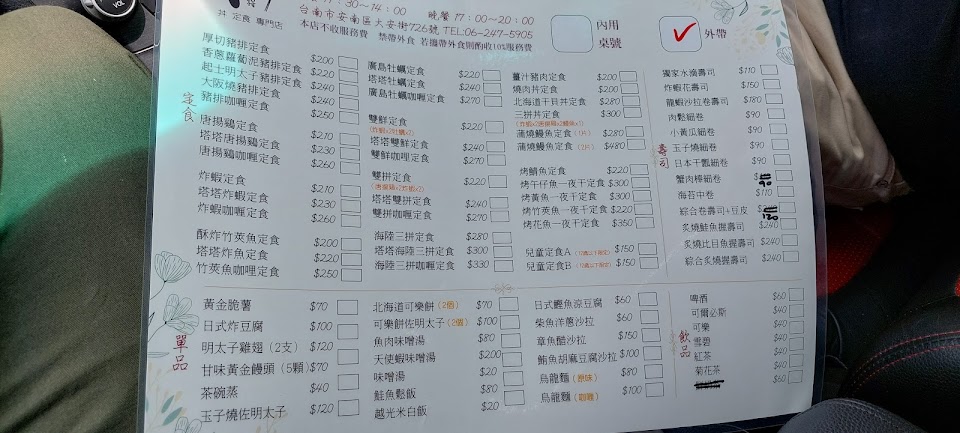 丼 定食 專門店
30～14：00 晚餐 17：00～20：00
台南市安南區大安街726號 TEL:06-247-5905
本店不收服務費 禁帶外食 若攜帶外食則酌收10%服務費
內用
桌號
外帶
定食
厚切豬排定食 $200
香蔥蘿蔔泥豬排定食 $220
起士明太子豬排定食 $240
大阪燒豬排定食 $240
豬排咖喱定食 $250
唐揚鷄定食 $210
塔塔唐揚鷄定食 $230
唐揚鷄咖喱定食 $260
炸蝦定食 $210
塔塔炸蝦定食 $230
炸蝦咖喱定食 $260
酥炸竹莢魚定食 $200
塔塔炸魚定食 $220
竹莢魚咖哩定食 $250
廣島牡蠣定食 $220
塔塔牡蠣定食 $240
廣島牡蠣咖喱定食 $270
雙鮮定食 $220
塔塔雙鮮定食 $240
雙鮮咖哩定食 $270
雙拼定食 $220
塔塔雙拼定食 $240
雙拼咖喱定食 $270
海陸三拼定食 $280
塔塔海陸三拼定食 $300
海陸三拼咖喱定食 $330
薑汁豬肉定食 $200
燒肉丼定食 $200
北海道干貝丼定食 $280
三拼丼定食 $300
蒲燒鰻魚定食（1片） $280
蒲燒鰻魚定食（2片） $480
烤鯖魚定食 $220
烤午仔魚一夜干定食 $300
烤黃魚一夜干定食 $300
烤竹莢魚一夜干定食 $220
烤花魚一夜干定食 $350
兒童定食A $150
兒童定食B $150
壽司
獨家水滴壽司 $110
炸蝦花壽司 $150
龍蝦沙拉卷壽司 $180
肉鬆細卷 $90
小黃瓜細卷 $90
玉子燒細卷 $90
日本干瓢細卷 $90
蟹肉棒細卷 90
海苔中卷 $110
綜合卷壽司+豆皮 120
炙燒鮭魚握壽司 $240
炙燒比目魚握壽司 $240
綜合炙燒握壽司 $240
單品
黃金脆薯 $70
日式炸豆腐 $100
明太子雞翅（2支） $120
甘味黃金饅頭（5顆） $70
茶碗蒸 $40
玉子燒佐明太子 $120
北海道可樂餅（2個） $70
可樂餅佐明太子（2個） $100
魚肉味噌湯 $80
天使蝦味噌湯 $200
味噌湯 $20
鮭魚鬆飯 $80
越光米白飯 $20
日式鰹魚涼豆腐 $60
柴魚洋蔥沙拉 $60
章魚醋沙拉 $150
鮪魚胡麻豆腐沙拉 $100
烏龍麵（原味） $80
烏龍麵（咖喱） $100
飲品
啤酒 $60
可爾必斯 $40
可樂 $40
雪碧 $40
紅茶 $40
菊花茶 $40
$60